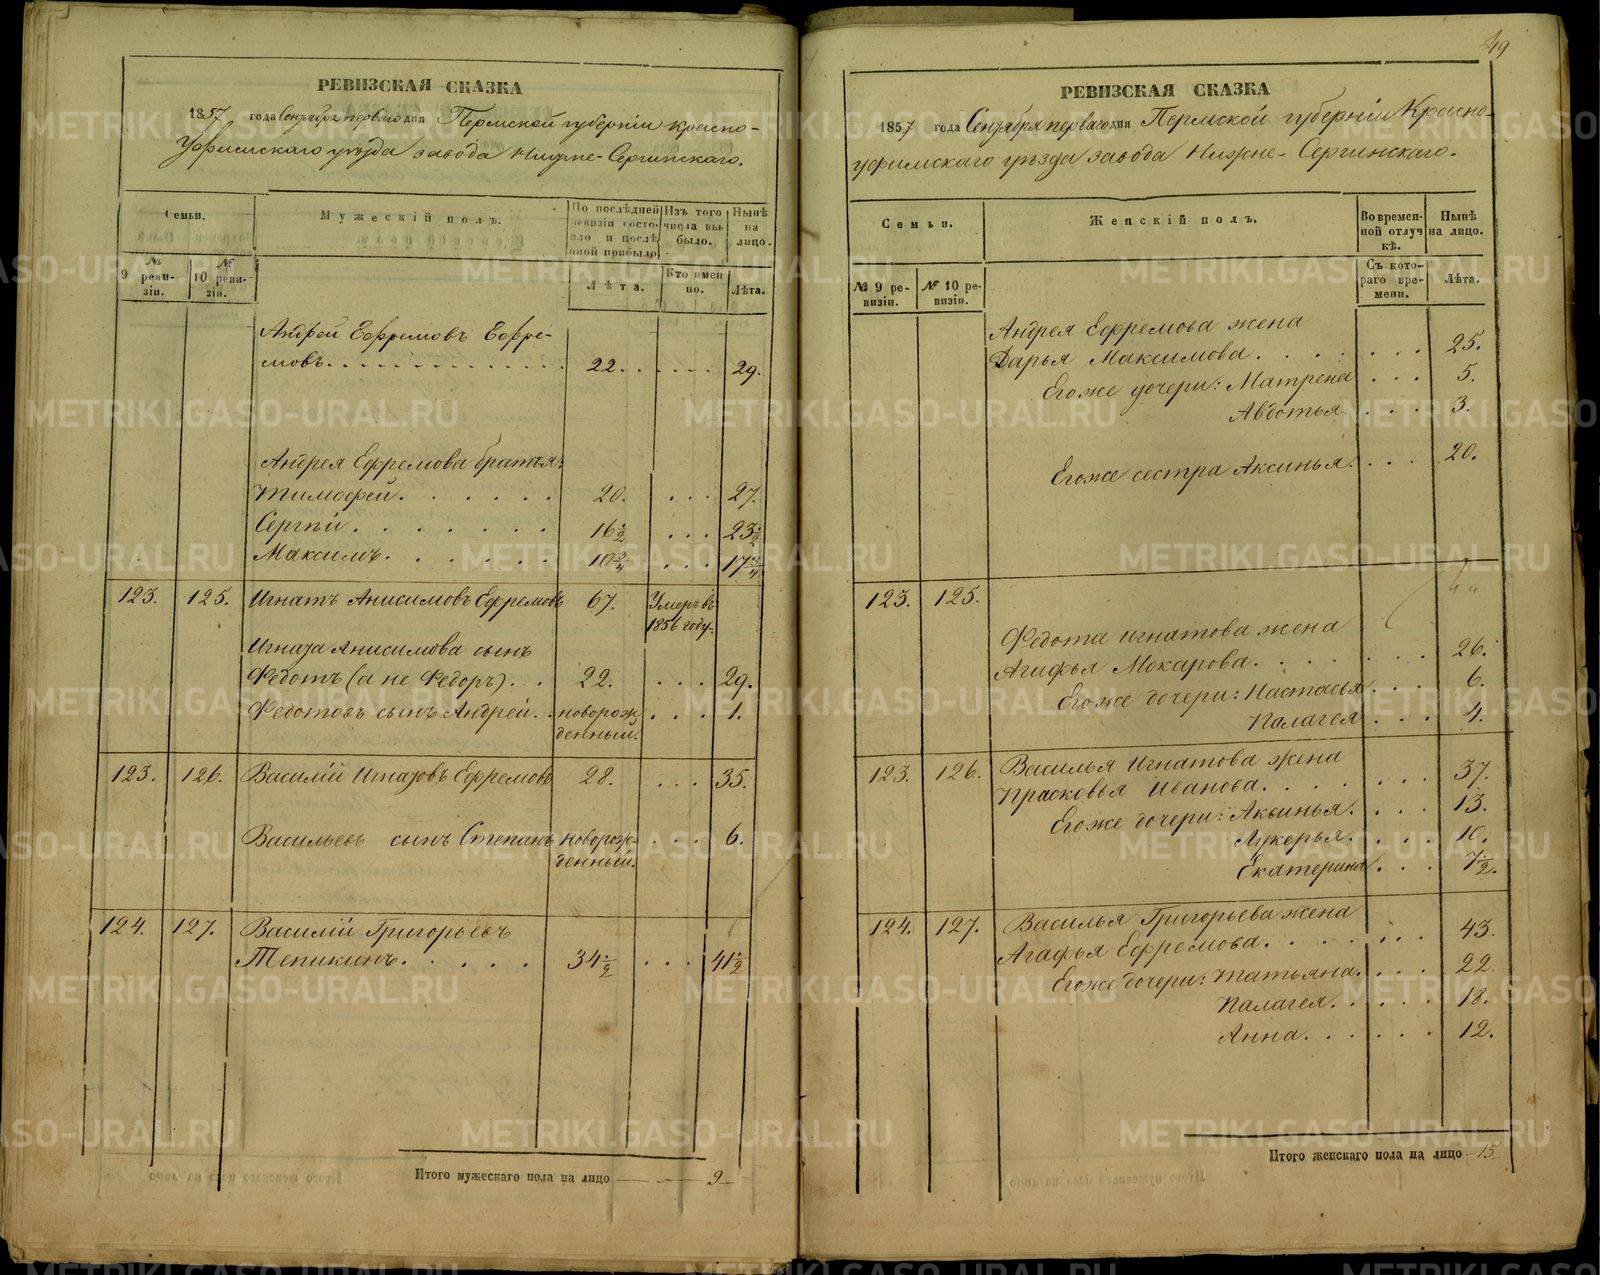 РЕВИЗСКАЯ СКАЗКА
1857 года Сентября перваго дня Пермской губерніи Красно-
Уфимскаго уѣзда завода Нижне-Сергинскаго.
Семьи.
Мужескій полъ.
По послѣдней ревизіи состояло и послѣ оной прибыло
Изъ того числа выбыло.
Нынѣ на лицо.
№ 9 ревизіи.
№ 10 ревизіи.
Лѣта.
Кто именно.
Лѣта.
Андрей Ефремовъ Ефре-
мовъ. 22. 29.
Андрея Ефремова братья:
Тимофей. 20. 27.
Сергѣй. 16 1/2 23 1/2
Максимъ. 10 3/4 17 3/4
123. 125. Игнатъ Анисимовъ Ефремовъ 67. Умеръ въ
1856 году.
Игната Анисимова сынъ
Федотъ (а не Федоръ). 22. 29.
Федотовъ сынъ Андрей. новорож- 1.
денный.
123. 126. Василій Игнатовъ Ефремовъ 28. 35.
Васильевъ сынъ Степанъ новорож- 6.
денный.
124. 127. Василій Григорьевъ
Тепикинъ. 34 1/2 41 1/2
Итого мужескаго пола на лицо 9
49
РЕВИЗСКАЯ СКАЗКА
1857 года Сентября перваго дня Пермской губерніи Красно-
уфимскаго уѣзда завода Нижне-Сергинскаго.
Семьи.
Женскій полъ.
Во временной отлучкѣ.
Нынѣ на лицо.
№ 9 ревизіи.
№ 10 ревизіи.
Съ котораго времени.
Лѣта.
Андрея Ефремова жена
Дарья Максимова. 25.
Егоже дочери: Матрена 5.
Авдотья. 3.
Егоже сестра Аксинья. 20.
123. 125.
Федота Игнатова жена
Агафья Мокарова. 26.
Егоже дочери: Настасья 6.
Палагея 4.
123. 126. Василья Игнатова жена
Прасковья Иванова. 37.
Егоже дочери: Аксинья. 13.
Лукерья. 10.
Екатерина 7 1/2.
124. 127. Василья Григорьева жена
Агафья Ефремова. 43.
Егоже дочери: Татьяна. 22.
Палагея. 18.
Анна. 12.
Итого женскаго пола на лицо 15
METRIKI.GASO-URAL.RU